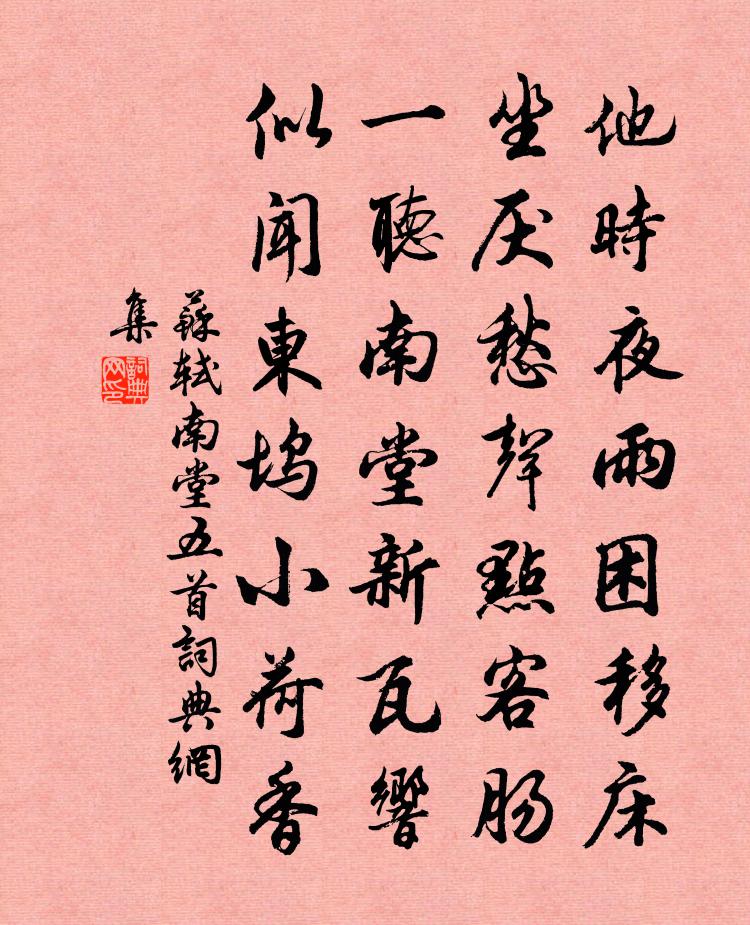 他時夜雨困移床
坐厌愁聲點客肠
一聽南堂新瓦響
似闻東塢小荷香
蘇軾南堂五首詞典網
集
詞典
网印